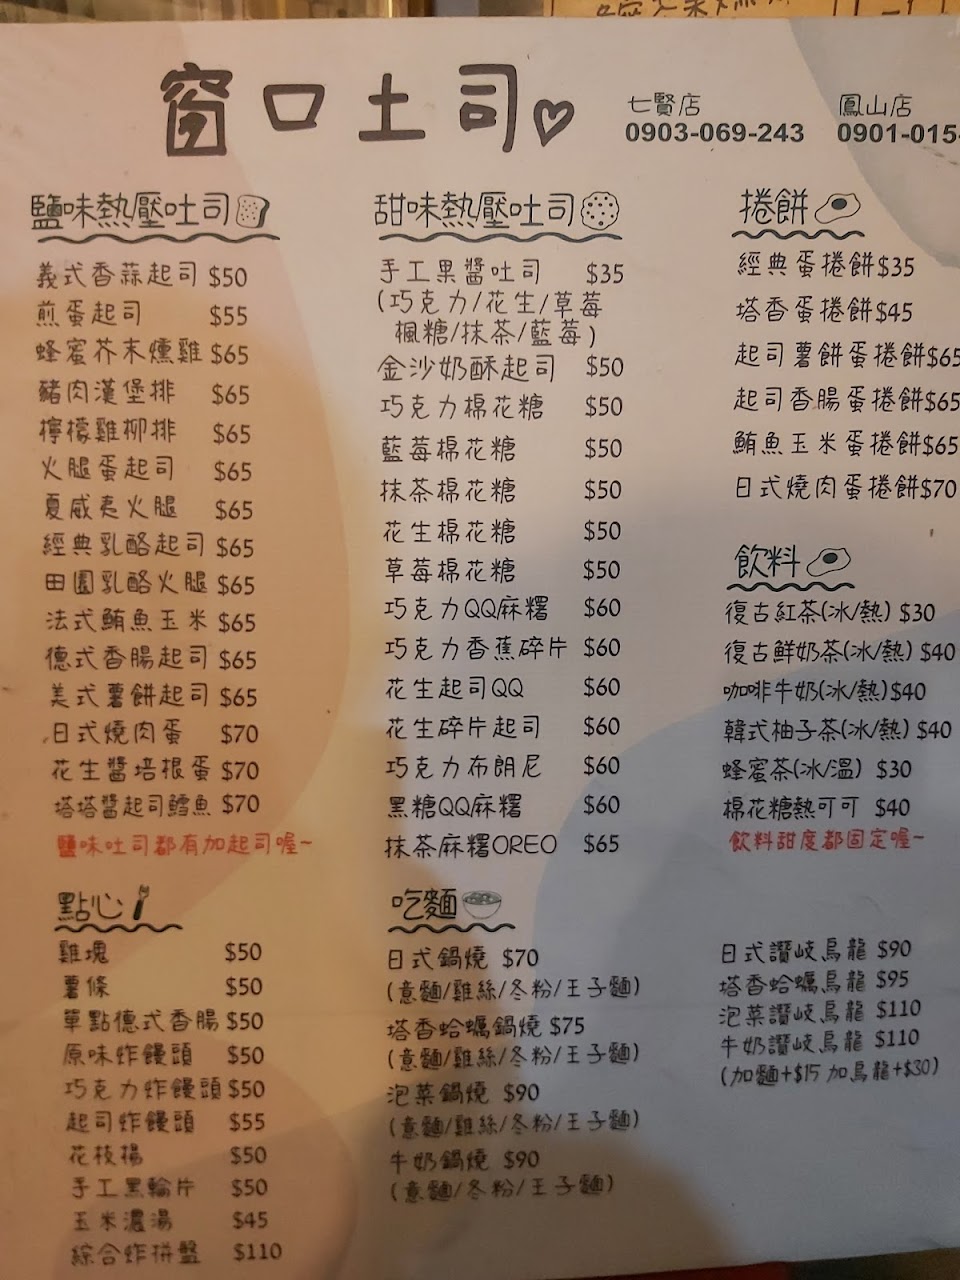 窗口土司
七賢店
0903-069-243
鳳山店
0901-015-
鹽味熱壓吐司
義式香蒜起司 $50
煎蛋起司 $55
蜂蜜芥末燻雞 $65
豬肉漢堡排 $65
檸檬雞柳排 $65
火腿蛋起司 $65
夏威夷火腿 $65
經典乳酪起司 $65
田園乳酪火腿 $65
法式鮪魚玉米 $65
德式香腸起司 $65
美式薯餅起司 $65
日式燒肉蛋 $70
花生醬培根蛋 $70
塔塔醬起司鱈魚 $70
鹽味吐司都有加起司喔~
點心
雞塊 $50
薯條 $50
單點德式香腸 $50
原味炸饅頭 $50
巧克力炸饅頭 $50
起司炸饅頭 $55
花枝楊 $50
手工黑輪片 $50
玉米濃湯 $45
綜合炸拼盤 $110
甜味熱壓吐司
手工果醬吐司 $35
(巧克力/花生/草莓
楓糖/抹茶/藍莓)
金沙奶酥起司 $50
巧克力棉花糖 $50
藍莓棉花糖 $50
抹茶棉花糖 $50
花生棉花糖 $50
草莓棉花糖 $50
巧克力QQ麻糬 $60
巧克力香蕉碎片 $60
花生起司QQ $60
花生碎片起司 $60
巧克力布朗尼 $60
黑糖QQ麻糬 $60
抹茶麻糬OREO $65
吃麵
日式鍋燒 $70
(意麵/雞絲/冬粉/王子麵)
塔香蛤蠣鍋燒 $75
(意麵/雞絲/冬粉/王子麵)
泡菜鍋燒 $90
(意麵/雞絲/冬粉/王子麵)
牛奶鍋燒 $90
(意麵/冬粉/王子麵)
捲餅
經典蛋捲餅$35
塔香蛋捲餅$45
起司薯餅蛋捲餅$65
起司香腸蛋捲餅$65
鮪魚玉米蛋捲餅$65
日式燒肉蛋捲餅$70
飲料
復古紅茶(冰/熱) $30
復古鮮奶茶(冰/熱) $40
咖啡牛奶(冰/熱)$40
韓式柚子茶(冰/熱) $40
蜂蜜茶(冰/溫) $30
棉花糖熱可可 $40
飲料甜度都固定喔~
日式讚岐烏龍 $90
塔香蛤蠣烏龍 $95
泡菜讚岐烏龍 $110
牛奶讚岐烏龍 $110
(加麵+$15 加烏龍+$30)